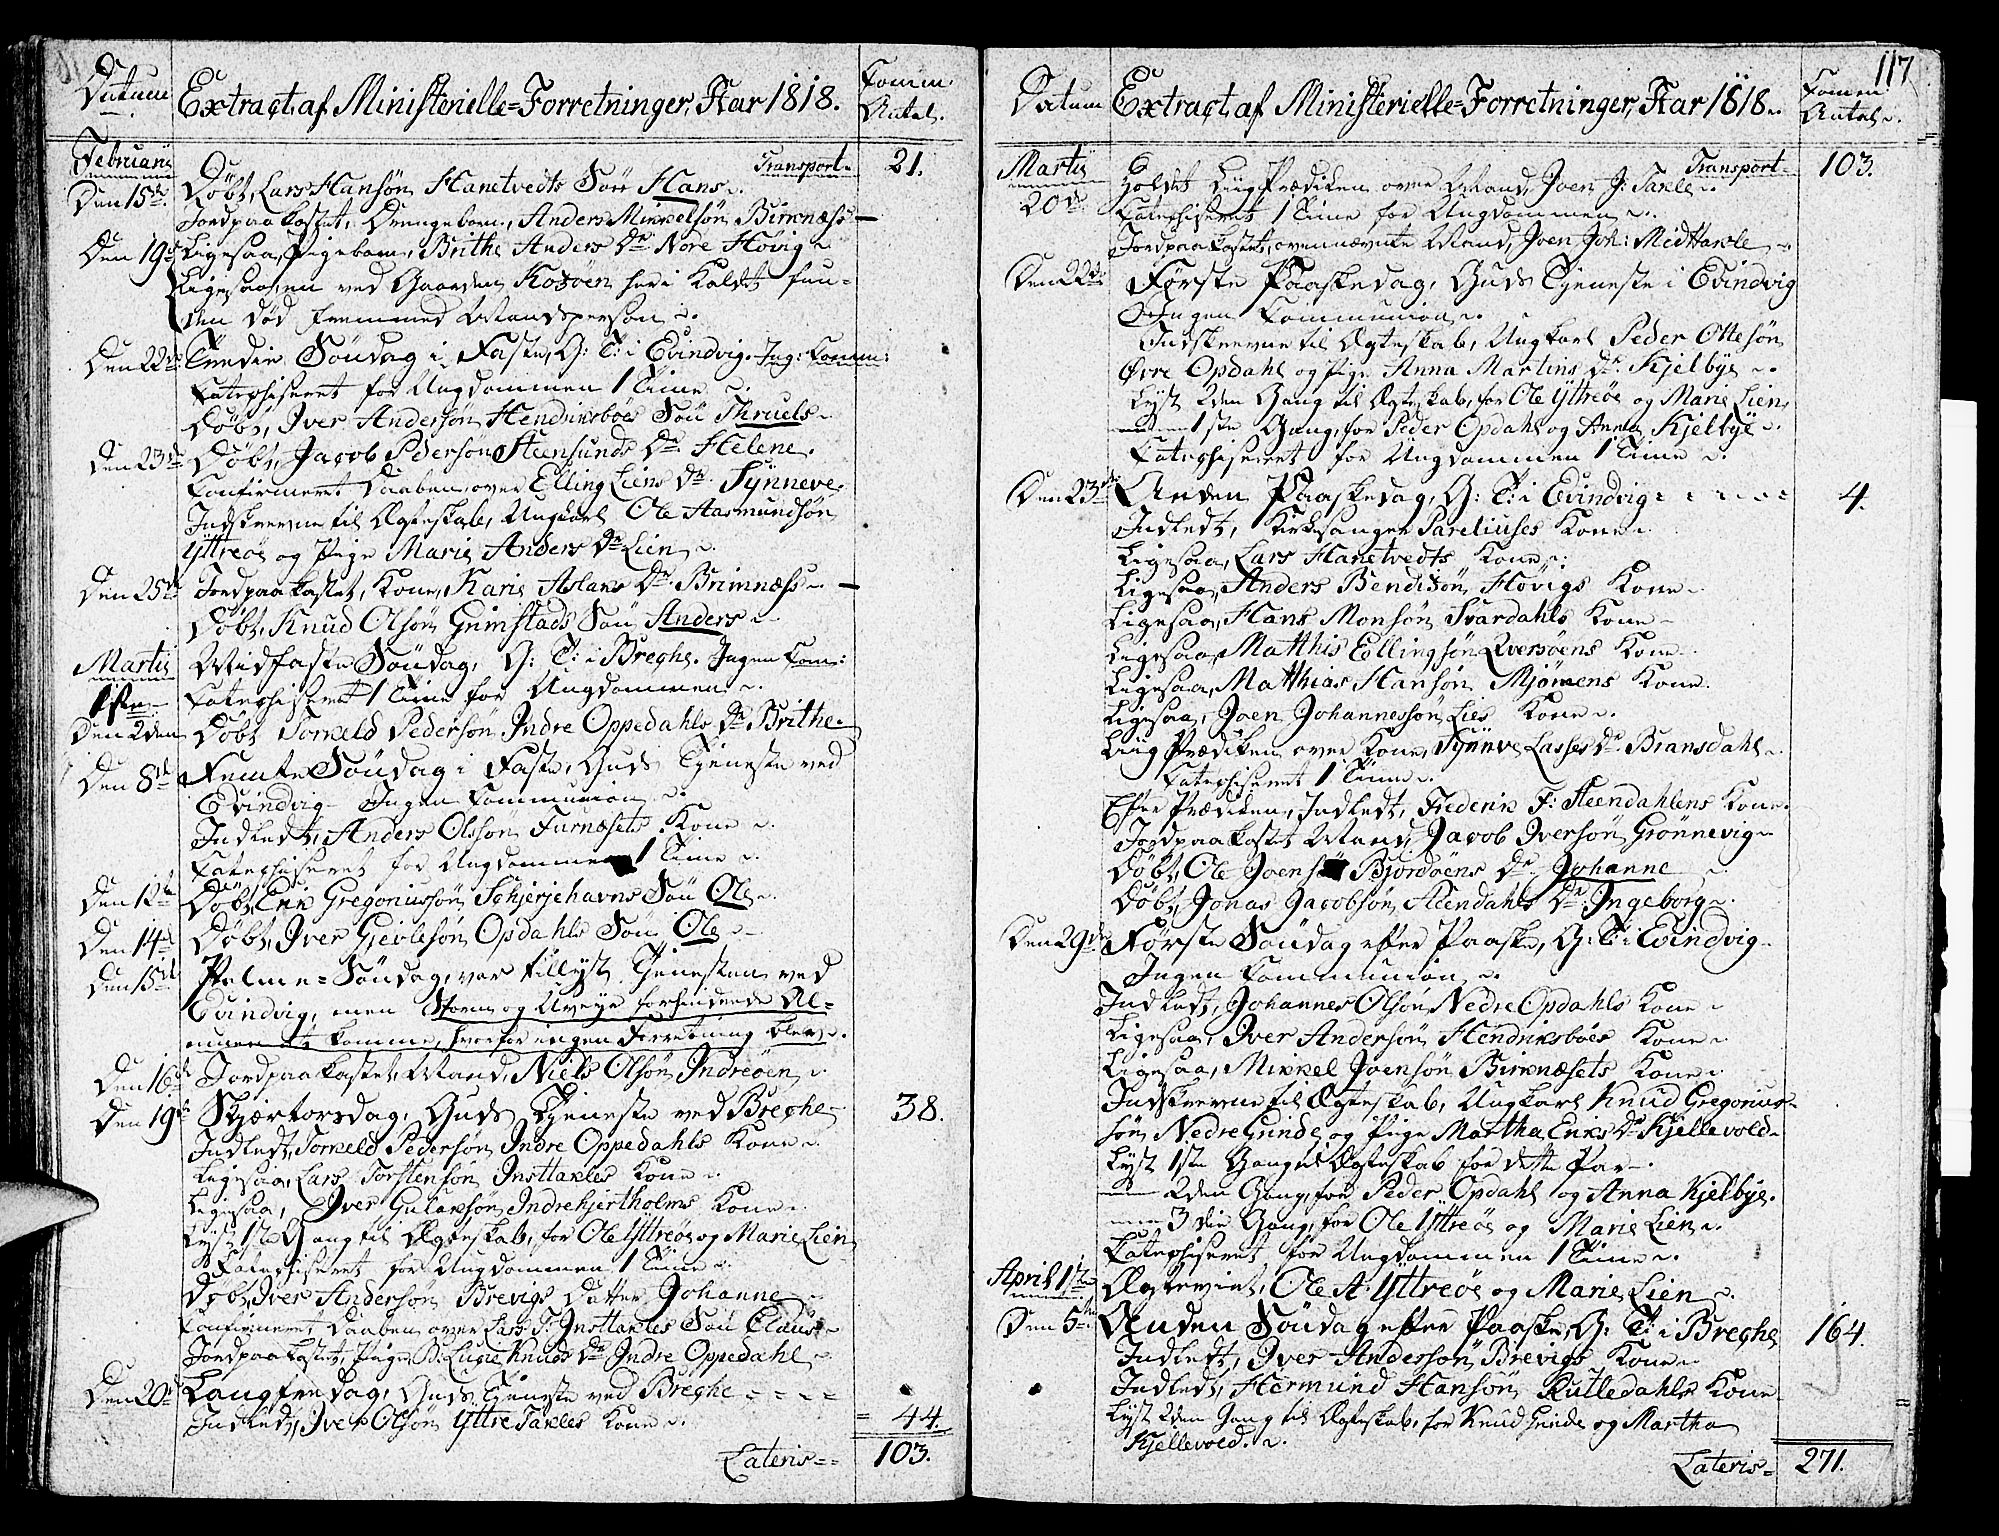 Datum
Extract af Ministerielle=Forretninger, Aar 1818.
Comm:
Antal.
Februarii
Transport
21.
Den 15de
Døbt, Lars Hansøn Hanetvedts Søn Hans
Jordpaakastet, Drengebarn, Anders Mikkelsøn Birknæss —
Den 19de
Ligesaa, Pigebarn, Brithe Anders Dr Nore Høvig
Ligesaa, en ved Gaarden Kosøen her i Kaldet fun-
den død fremmed Mandsperson
Den 22de
Tredie Søndag i Faste, G: T: i Evindvig. Ing: Comm:
Catechiseret for Ungdommen 1 Time
Døbt, Iver Andersøn Hendriksbøes Søn Thruels
Den 23de
Døbt, Jacob Pedersøn Steensunds Dr Helene.
Confirmeret Daaben over Elling Liens Dr Synneve.
Indskrevne til Ægteskab, Ungkarl Ole Aasmundsøn
Yttreøe og Pige Marie Anders Dr Lien
Den 25de
Jordpaakastet, Kone, Karie Aslaks Dr Brimnæss —
Døbt, Knud Olsøn Grimstads Søn Anders
Martii
Midfaste Søndag, G: T: i Breghe. Ingen Com:
1ste
Catechiseret 1 Time for Ungdommen
Den 2den
Døbt Torkeld Pedersøn Indre Oppedahls Dr Brithe.
Den 8de
Femte Søndag i Faste, Guds Tjeneste ved
Evindvig Ingen Communion
Indledt, Anders Olsøn Furnæsets Kone
Catechiseret for Ungdommen 1 Time
Den 12te
Døbt, Erik Gregoriussøn Schjerjehavns Søn Ole
Den 14de
Døbt, Iver Gjevlesøn Opdahls Søn Ole
Den 15de
Palme=Søndag, var tillyst Tjenesten ved
Evindvig, men Storm og Uveyr forhindrede Al-
muen at komme, hvorfor ingen Forretning blev.
Den 16de
Jordpaakastet Mand, Niels Olsøn Indreøen
Den 19de
Skjærtorsdag, Guds Tjeneste ved Breghe
38.
Indledt, Torkeld Pedersøn Indre Oppedahls Kone
Ligesaa, Lars Torstensøn Insttakles Kone
Ligesaa, Iver Gulaksøn Indrehjertholms Kone
Lyst 1ste Gang til Ægteskab, for Ole Yttreøe og Marie Lien
Catechiseret for Ungdommen 1 Time
Døbt, Iver Andersøn Brevigs Datter Johanne
Confirmeret Daaben over Lars T: Insttakles Søn Claus
Jordpaakastet, Pige B: Lucie Knuds Dr Indre Oppedahl
Den 20de
Langfredag, Guds Tjeneste ved Breghe
44.
Indledt, Iver Olsøn Yttre Takles Kone
Lateris
103.
117
Datum
Extract af Ministerielle=Forretninger, Aar 1818.
Comm
Antal
Martii
Transport
103.
20de
Holdet Liigprædiken over Mand, Joen J: Takle
Catechiseret 1 Time for Ungdommen
Jordpaakastet, ovennævnte Mand, Joen Joh: MidTakle
Den 22de
Første Paaskedag, Guds Tjeneste i Evindvig
Ingen Communion
Indskrevne til Ægteskab, Ungkarl Peder Ottesøn
Øvre Opdahl og Pige Anna Martins Dr Kjelbye
Lyst 2den Gang til Ægteskab, for Ole Yttreøe og Marie Lien,
— 1ste Gang, for Peder Opdahl og Anna Kjelbye
Catechiseret for Ungdommen 1 Time
Den 23de
Anden Paaskedag, G: T: i Evindvig
4.
Indledt, Kirkesanger Pareliuses Kone
Ligesaa, Lars Hanetvedts Kone
Ligesaa, Anders Bendixøn Høvigs Kone
Ligesaa, Hans Monsøn Svardahls Kone
Ligesaa, Matthis Ellingsøn Qversøens Kone
Ligesaa, Matthias Hansøn Mjømens Kone.
Ligesaa, Joen Johannessøn Lies Kone
Liigprædiken over Kone, Synnve Lasses Dr Bransdahl
Catechiseret 1 Time
Efter Prædiken, Indledt, Frederik F: Steendahlens Kone.
Jordpaakastet Mand, Jacob Iversøn Grønnevig
Døbt, Ole Joensøn Bjordøens Dr Johanne
Døbt, Jonas Jacobsøn Steendahls Dr Ingeborg
Den 29de
Første Søndag efter Paaske, G: T: i Evindvig
Ingen Communion
Indledt, Johannes Olsøn Nedre Opdahls Kone
Ligesaa, Iver Andersøn Hendriksbøes Kone
Ligesaa, Mikkel Joensøn Birknæsets Kone
Indskrevne til Ægteskab, Ungkarl Knud Gregorius-
søn Nedre Eide og Pige Martha Eriks Dr Kjellevold
Lyst 1ste Gang til Ægteskab for dette Par
— 2den Gang, for Peder Opdahl og Anna Kjelbye.
— 3die Gang, for Ole Yttreøe og Marie Lien
Catechiseret for Ungdommen 1 Time
April 1ste
Ægteviet, Ole A: Yttreøe og Marie Lien
Den 5te
Anden Søndag efter Paaske, G: T: i Breghe
164.
Indledt, Iver Andersøn Brevigs Kone
Indledt, Hermund Hansøn Rutledahls Kone
Lyst 2den Gang til Ægteskab, for Knud Eide og Martha
Kjellevold.
Lateris
271.